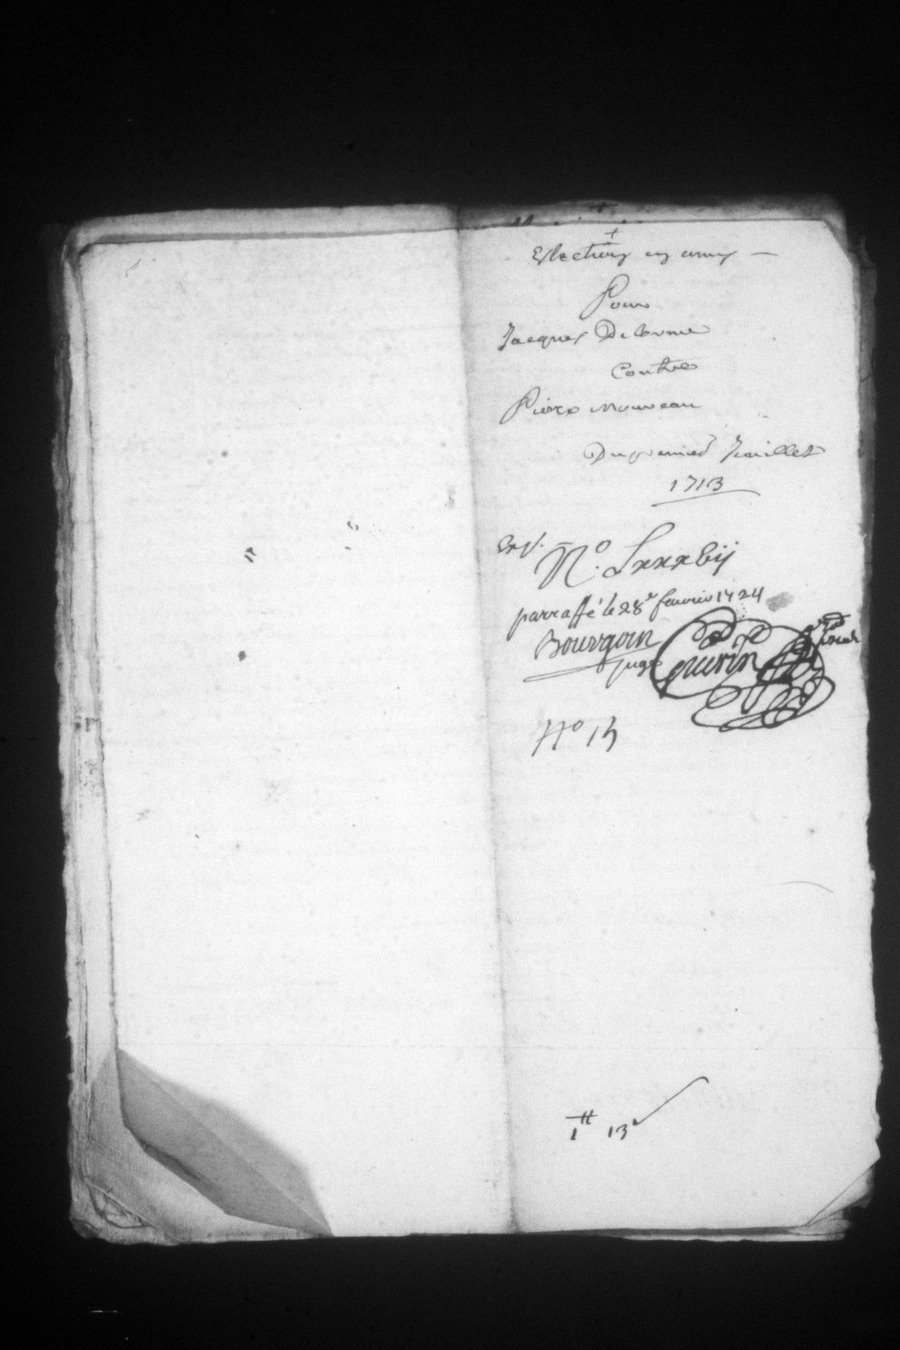 +
Eslection en amy
Pour
Jacques Delorme
Contre
Pierre Mouveau
Du premier Juillet
1713
No. Lxxxbij
parraffé le 28e feuvrier 1724
Bourgoin
juge
Guerin
No 13
1tt 13s